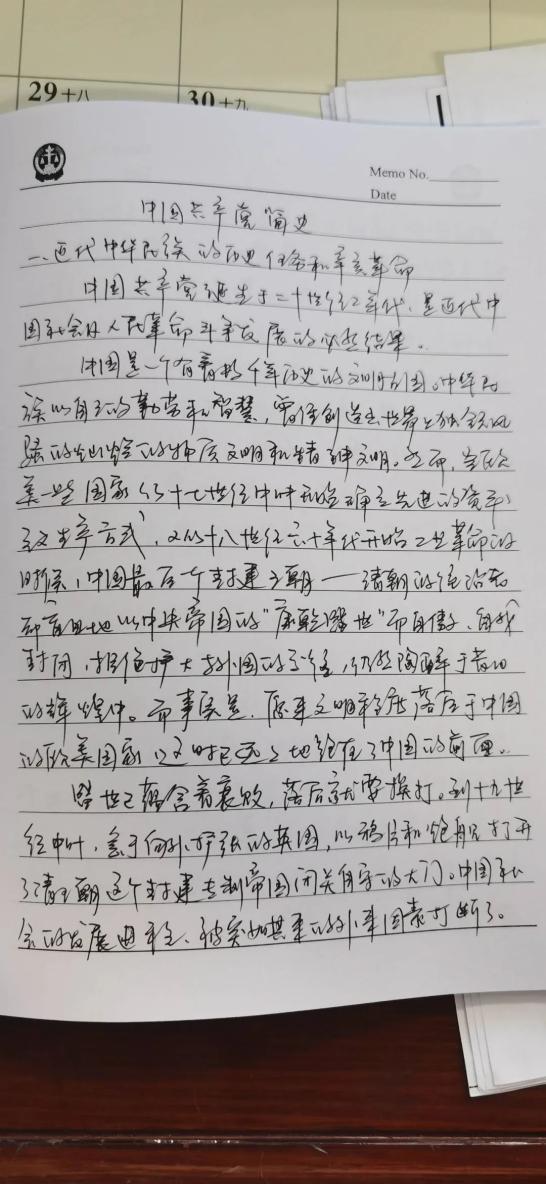 29 十八
30 十九
Memo No.
Date
中国共产党简史
一、近代中华民族的历史任务和辛亥革命
中国共产党诞生于二十世纪二十年代，是近代中
国社会及人民革命斗争发展的必然结果。
中国是一个有着数千年历史的文明古国。中华民
族以自己的勤劳和智慧，曾经创造出世界上独领风
骚的灿烂的物质文明和精神文明。然而，当欧
美一些国家从十七世纪中叶开始确立先进的资本主
义生产方式，又从十八世纪六十年代开始工业革命的
时候，中国最后一个封建王朝——清朝的统治者
却盲目地以中央帝国的"康乾盛世"而自傲、自我
封闭，拒绝扩大和外国的交往，仍然陶醉于昔日
的辉煌中。而事实是，原来文明程度落后于中国
的欧美国家这时已远远地跑在了中国的前面。
盛世已蕴含着衰败，落后就要挨打。到十九世
纪中叶，急于向外扩张的英国，以鸦片和炮舰打开
了清王朝这个封建专制帝国闭关自守的大门。中国社
会的发展进程，被突如其来的外来因素打断了。